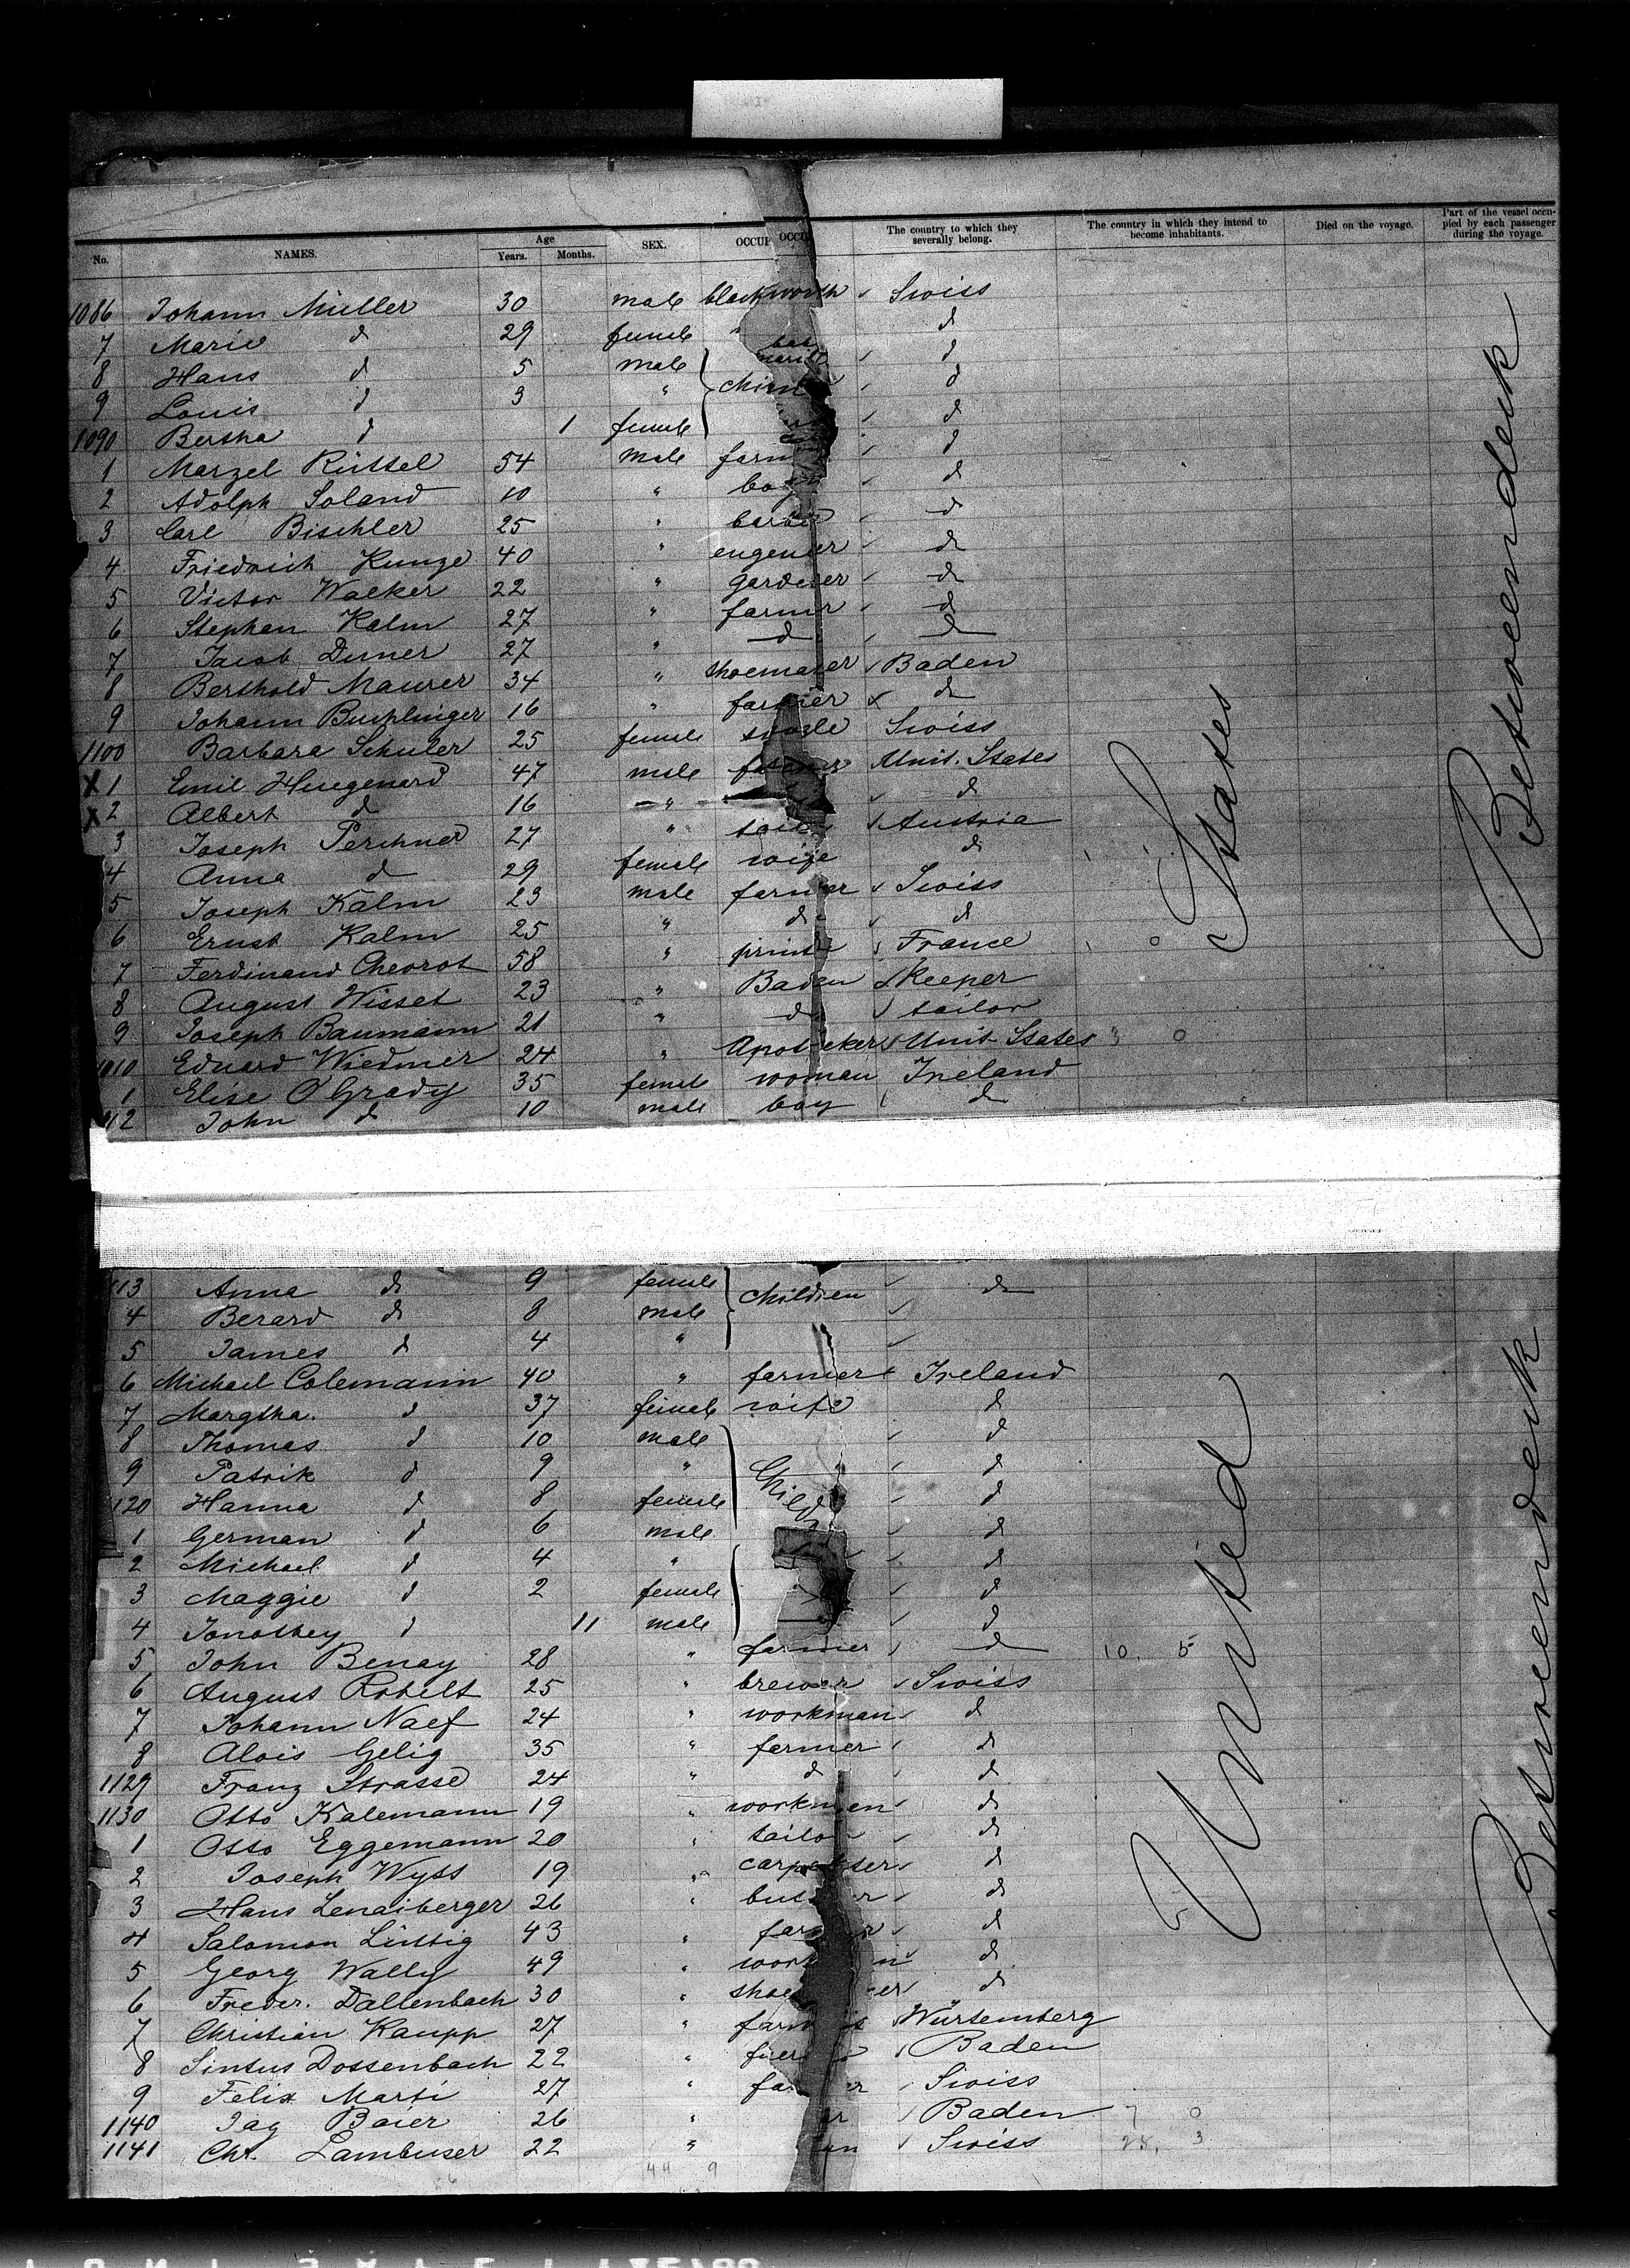 No. NAMES. Age Years. Months. SEX. OCCUP OCCU The country to which they severally belong. The country in which they intend to become inhabitants. Died on the voyage. Part of the vessel occupied by each passenger during the voyage.
1086 Johann Müller 30 male Swiss
7 Marie d 29 female d
8 Hans d 5 male d
9 Louis d 3 " d
1090 Bertha d 1 female d
1 Marzel Rüttel 54 male farm d
2 Adolph Soland 10 " boy d
3 Carl Bischler 25 " barber d
4 Friedrich Kunze 40 " engenier d
5 Victor Walker 22 " gardener d
6 Stephan Kalm 27 " farmer d
7 Jacob Durner 27 " d d
8 Berthold Maurer 34 " shoemaker Baden
9 Johann Buchlinger 16 " farmer d
1100 Barbara Schuler 25 female single Swiss
X 1 Emil Huegenard 47 male Unit. States
X 2 Albert d 16 " d
3 Joseph Perchner 27 " Austria
4 Anna d 29 female wife d
5 Joseph Kalm 23 male farmer Swiss
6 Ernst Kalm 25 " d d
7 Ferdinand Cheorot 58 " France
8 August Wisset 23 " Baden Keeper
9 Joseph Baumann 21 " d tailor
1010 Eduard Wiedmer 24 " Apotheker Unit States 3 0
1 Elise O'Grady 35 female woman Ireland
112 John d 10 male boy d
113 Anna d 9 female children d
4 Berard d 8 male
5 James d 4 "
6 Michael Colemann 40 " farmer Ireland
7 Margtha. d 37 female wife d
8 Thomas d 10 male d
9 Patrik d 9 " d
120 Hanna d 8 female d
1 German d 6 male d
2 Michael d 4 " d
3 Maggie d 2 female d
4 Jonothey d 11 male d
5 John Benay 28 " farmer d 10. 5
6 August Robelt 25 " brewer Swiss
7 Johann Naef 24 " workman d
8 Alois Gelig 35 " farmer d
1129 Franz Strasse 24 " d d
1130 Otto Kalemann 19 " workmen d
1 Otto Eggemann 20 " tailor d
2 Joseph Wyss 19 " carpenter d
3 Hans Lenaiberger 26 " d
4 Salomon Lüttig 43 " d
5 Georg Wally 49 " d
6 Freder. Dallenbach 30 " d
7 Christian Kaupp 27 " Würtemberg
8 Sintus Dossenbach 22 " Baden
9 Felix Marti 27 " Swiss
1140 Jag Baier 26 " Baden 7 0
1141 Chr. Lambuser 22 " Swiss
United States
Betweendeck
Betweendeck